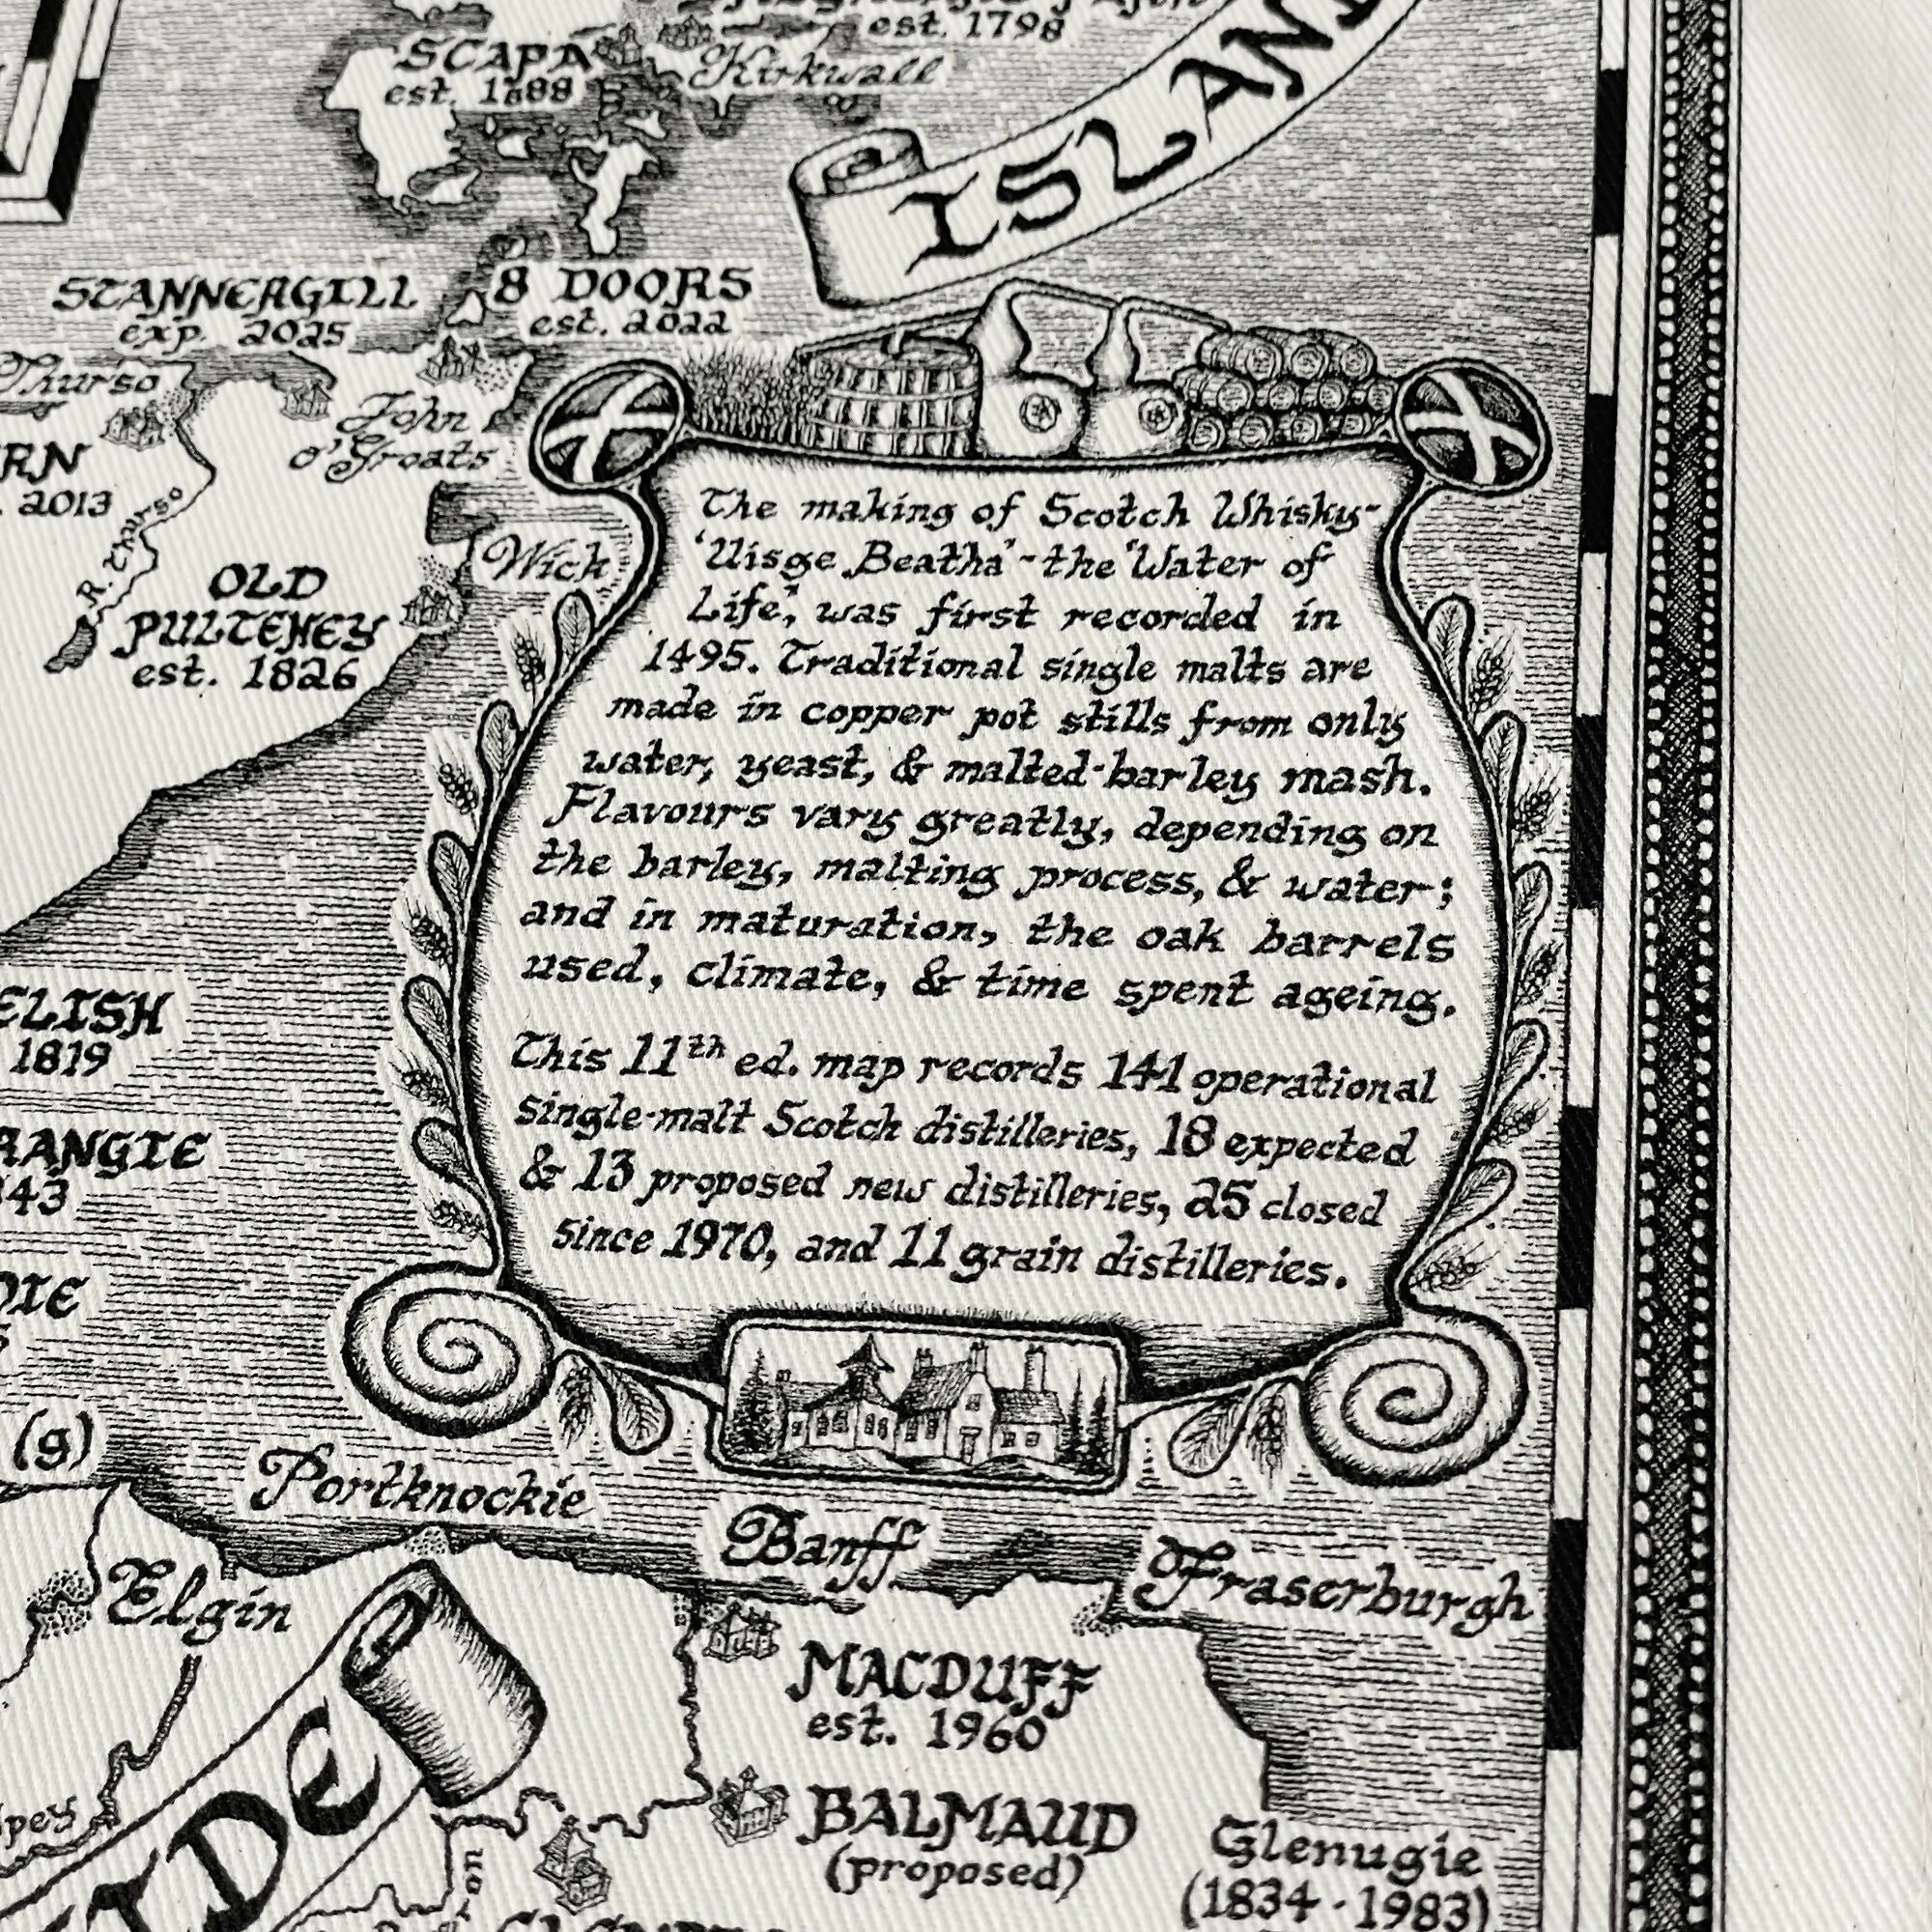 est. 1798
SCAPA
est. 1888
Kirkwall
ISLAN
STANNERGILL
exp. 2025
8 DOORS
est. 2022
Thurso
John
o'Groats
2013
R. Thurso
Wick
OLD
PULTENEY
est. 1826
The making of Scotch Whisky-
'Uisge Beatha'-the 'Water of
Life', was first recorded in
1495. Traditional single malts are
made in copper pot stills from only
water, yeast, & malted-barley mash.
Flavours vary greatly, depending on
the barley, malting process, & water;
and in maturation, the oak barrels
used, climate, & time spent ageing.
This 11th ed. map records 141 operational
single-malt Scotch distilleries, 18 expected
& 13 proposed new distilleries, 25 closed
since 1970, and 11 grain distilleries.
ELISH
1819
RANGIE
43
DIE
(g)
Portknockie
Banff
Fraserburgh
Elgin
MACDUFF
est. 1960
BALMAUD
(proposed)
Glenugie
(1834-1983)
pey
IDE
on